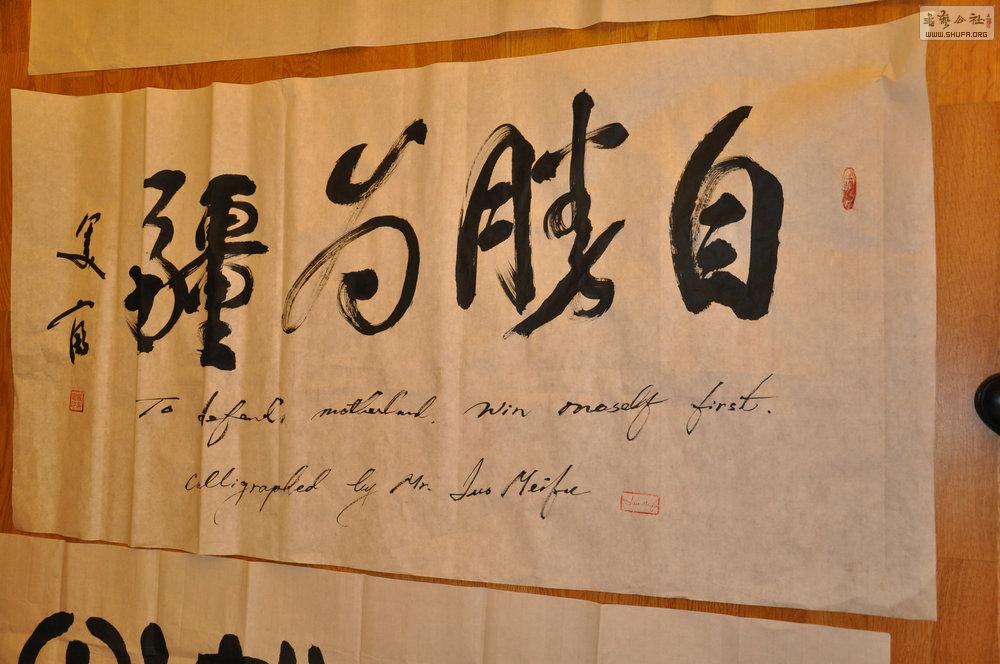 书艺公社
WWW.SHUFA.ORG
自勝为疆
美富
To defend, motherland. Win oneself first.
Calligraphed by Mr. Luo Meifu